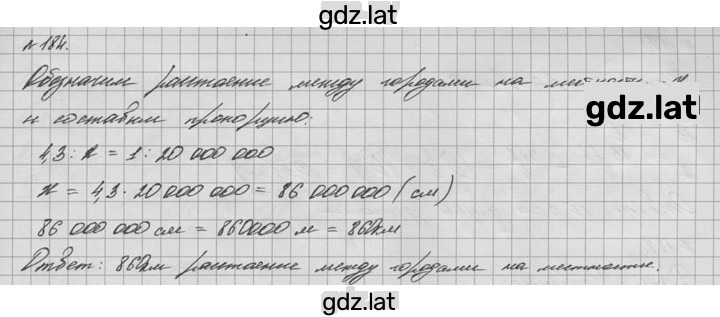 gdz.lat
№184.
Обозначим расстояние между городами на местности
gdz.lat
и составим пропорцию:
4,3 : x = 1 : 20 000 000
x = 4,3 · 20 000 000 = 86 000 000 (см)
86 000 000 см = 860000 м = 860км
Ответ: 860км расстояние между городами на местности.
gdz.lat